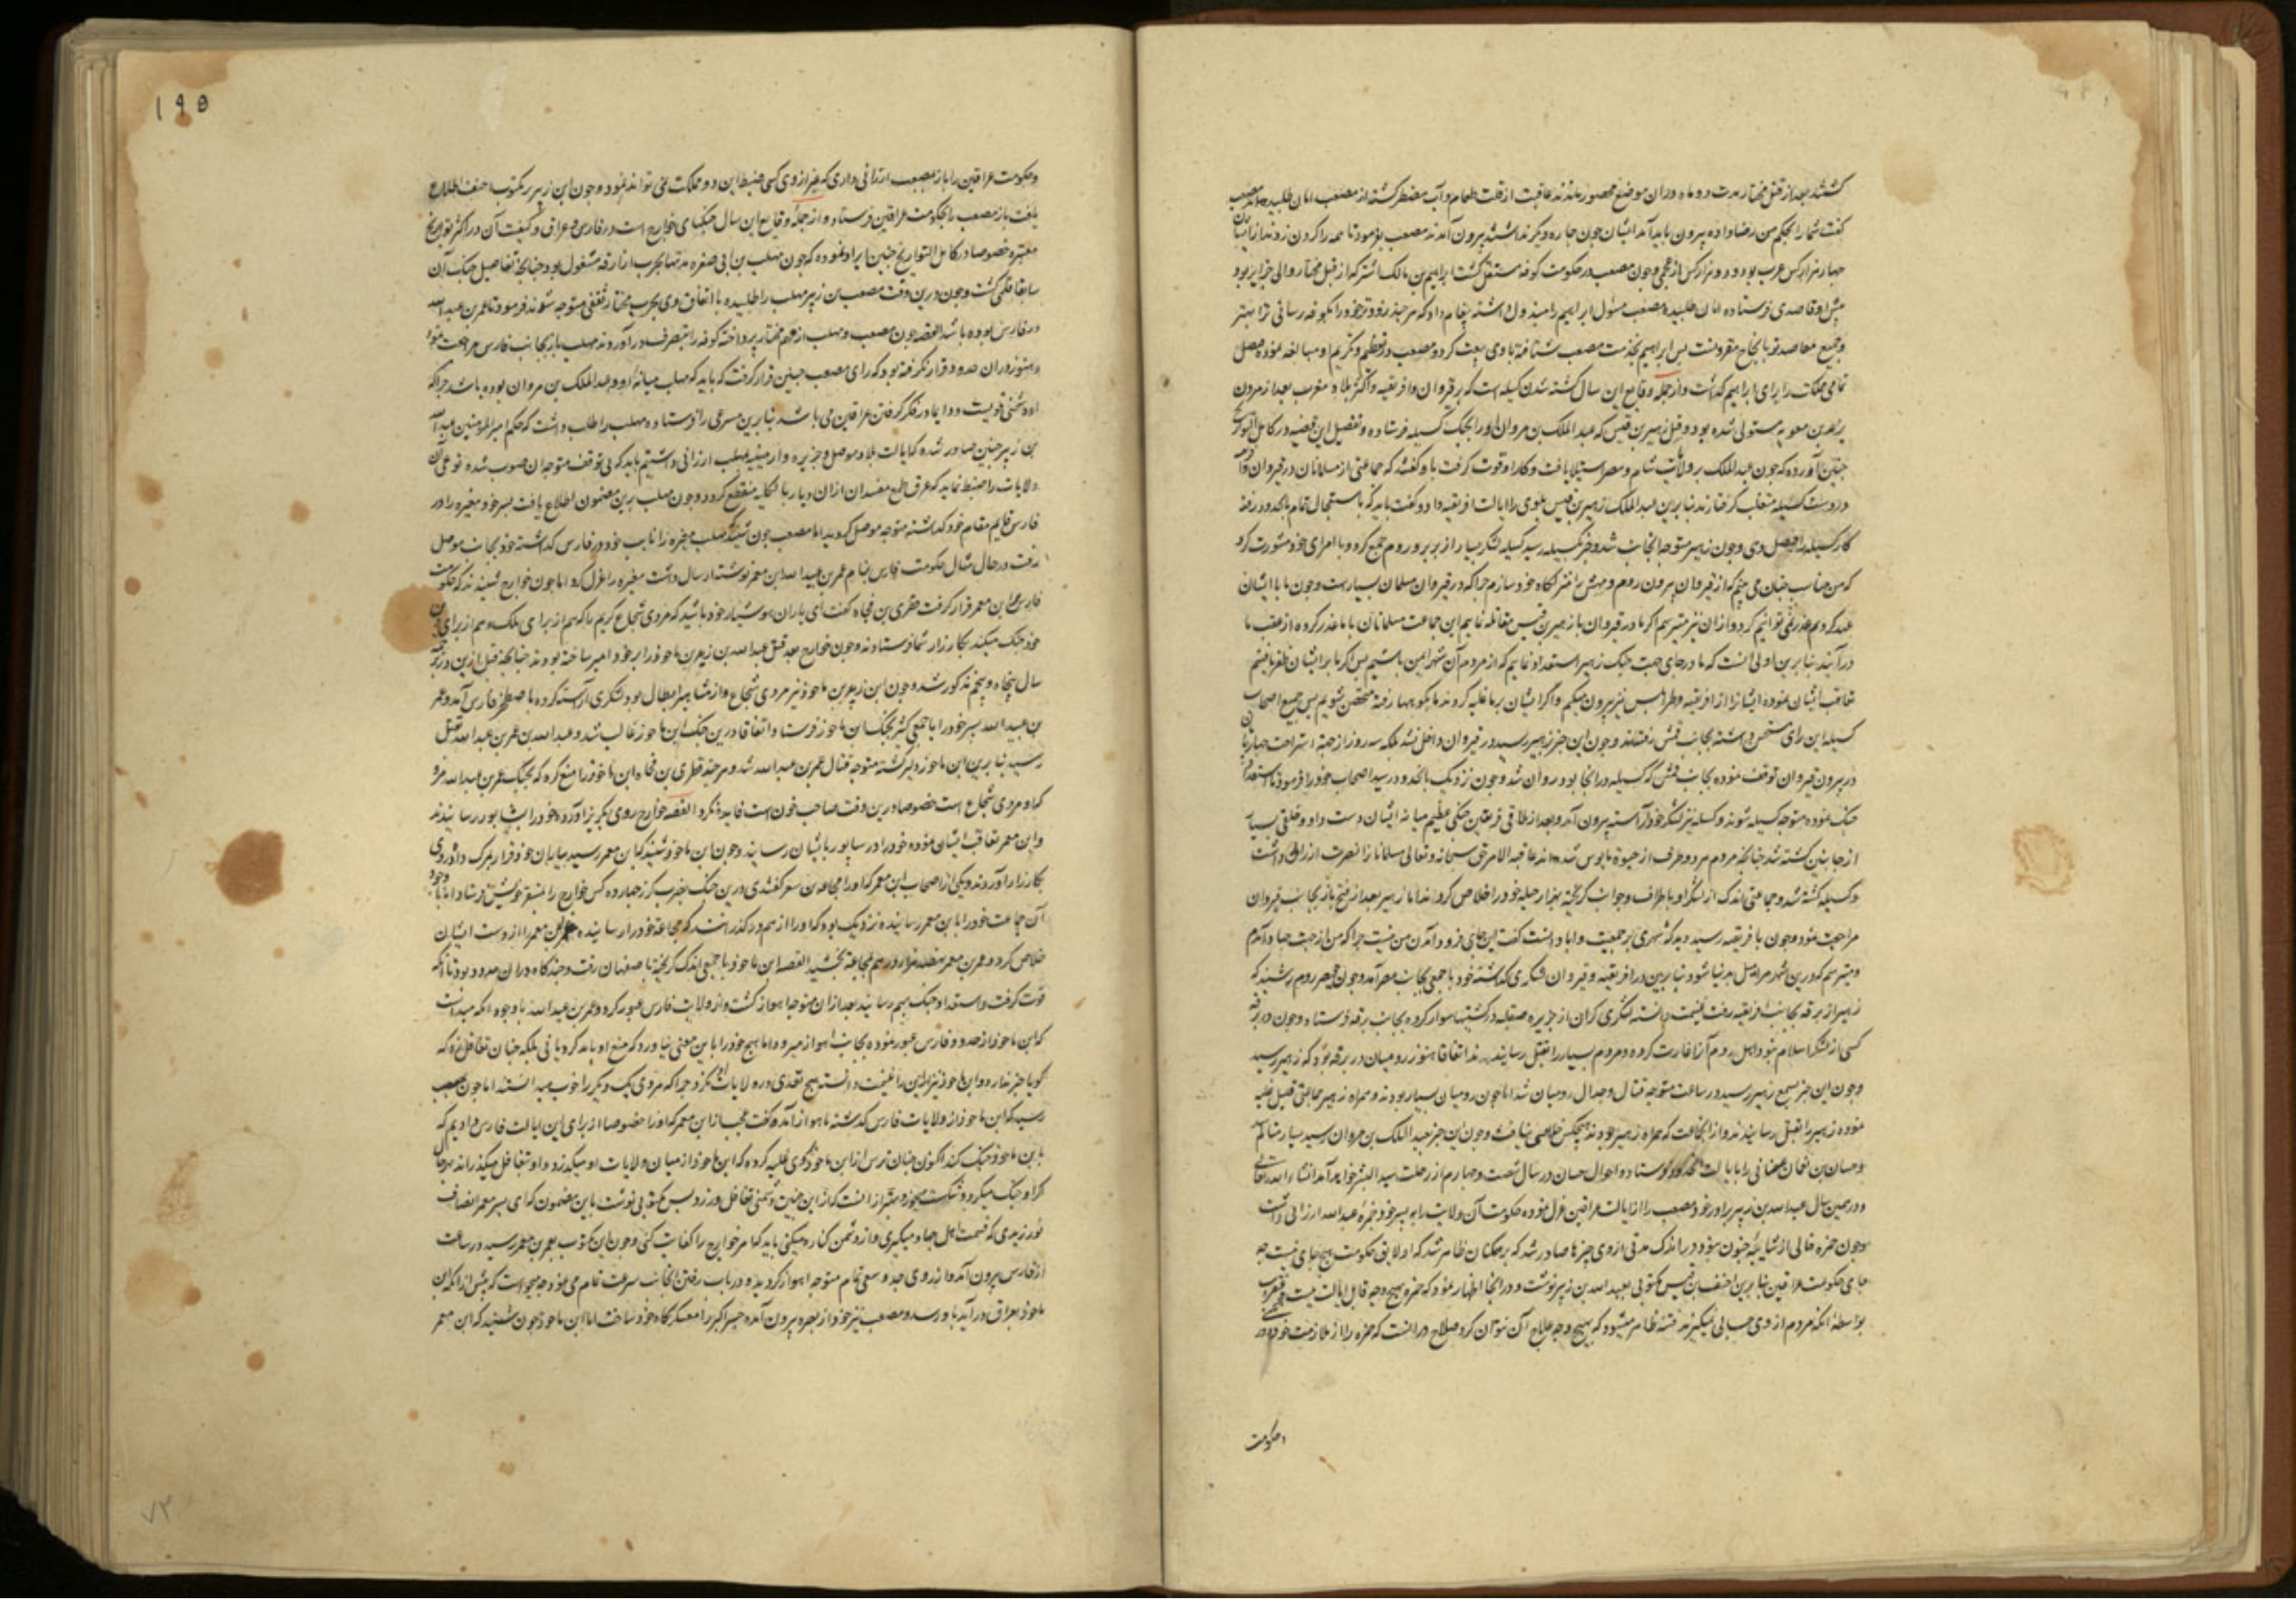 کشتند بعد از قتل مختار مدت دو ماه در ان موضع محصور ماندند عاقبت از قلت طعام و آب مضطر کشته از مصعب امان طلبیدند مصعب
کفت شما را بحکم من رضا داده بیرون باید آمد ایشان چون چاره دیکر نداشتند بیرون آمدند مصعب بفرمود تا همه را کردن زدند از ایشان
چهار هزار کس عرب بود و دو هزار کس از عجم و چون مصعب در حکومت کوفه مستقل کشت ابراهیم بن مالک اشتر که از قبل مختار والی جزایر بود
پیش او قاصدی فرستاده امان طلبید مصعب مسؤل ابراهیم را مبذول داشته پیغام داد که هر چند زودتر خود را بکوفه رسانی ترا بهتر
و جمیع مقاصد تو بانجاح مقرونست پس ابراهیم بخدمت مصعب شتافته با وی بیعت کرد و مصعب در تعظیم و تکریم او مبالغه نموده فیصل
تمامی مملکت را برای ابراهیم کذاشت و از جمله وقایع این سال کشته شدن کسیله است که بر قیروان و افریقیه و اکثر بلاد مغرب بعد از مردن
یزید بن معویه مستولی شده بود و قتل زهیر بن قیس که عبد الملک بن مروان او را بجنک کسیله فرستاده و تفصیل این قضیه در کامل التواریخ
چنین آورده که چون عبد الملک بر ولایت شام و مصر استیلا یافت و کار او قوت کرفت با او کفتند که جماعتی از مسلمانان در قیروان
در دست کسیله متغلب کرفتارند بنا برین عبد الملک زهیر بن قیس بلوی را ایالت افریقیه داد و کفت باید که باستعجال تمام بانحدود رفته
کار کسیله را فیصل دهی و چون زهیر متوجه انجانب شد و خبر بکسیله رسید کسیله لشکر بسیار از بربر و روم جمع کرد و با امرای خود مشورت کرد
که من مناسب چنان می بینم که از قیروان بیرون روم و ممش را لشکرکاه خود سازم چرا که در قیروان مسلمان بسیارست و چون ما با ایشان
عهد کردیم غدر نمی توانیم کرد و از ان نیز میترسم اکر ما در قیروان با زهیر بن قیس مقاتله نمایم این جماعت مسلمانان با ما غدر کرده از عقب ما
درآیند بنا برین اولی انست که ما در جای جهت جنک زهیر استعداد نمایم که از مردم آن شهر ایمن باشیم پس اکر ما بر ایشان ظفر یافتیم
تعاقب ایشان نموده ایشانرا از افریقیه و طرابلس نیز بیرون میکنیم و اکر ایشان بر ما غلبه کردند ما بکوهها رفته متحصن شویم پس جمیع اصحاب
کسیله این رای مستحسن داشته بجانب ممش رفتند و چون این خبر بزهیر رسید در قیروان داخل نشد بلکه سه روز از جهة استراحت
در بیرون قیروان توقف نموده بجانب ممش که کسیله در انجا بود روان شد و چون نزدیک بانحدود رسید اصحاب خود را فرمود تا استعداد
جنک نموده متوجه کسیله شوند و کسیله نیز لشکر خود آراسته بیرون آمد و بعد از تلاقی فریقین جنکی عظیم میانه ایشان دست داد و خلقی بسیار
از جانبین کشته شد چنانکه مردم هر دو طرف از حیوة مایوس شدند عاقبة الامر حق سبحانه و تعالی مسلمانا نرا نصرت ارزانی داشت
و کسیله کشته شد و جماعتی اندک از لشکر او باطراف و جوانب کریخته بهزار حیله خود را خلاص کردند اما زهیر بعد از فتح باز بجانب قیروان
مراجعت نمود و چون بافریقیه رسید دید که شهری پر جمعیت و ابادانست کفت این جای فرود آمدن من نیست چرا که من از جهت جهاد آمدم
و میترسم که درین شهر مرا میل بدنیا شود بنا برین در افریقیه و قیروان لشکری کذاشته خود با جمعی بجانب مصر آمد و چون قیصر روم شنید که
زهیر از برقه بجانب افریقیه رفت غنیمت دانسته لشکری کران از جزیره صقلیه در کشتیها سوار کرده بجانب برقه فرستاد و چون در برقه
کسی از لشکر اسلام نبود اهل روم آنرا غارت کرده و مردم بسیار را بقتل رسانیدند اتفاقا هنوز رومیان در برقه بود که زهیر رسید
و چون این خبر بسمع زهیر رسید در ساعت متوجه قتال و جدال رومیان شد اما چون رومیان بسیار بودند و همراه زهیر جماعتی قلیل غلبه
نموده زهیر را بقتل رسانیدند و از انجماعت که همراه زهیر بودند هیچکس خلاصی نیافت و چون این خبر بعبد الملک بن مروان رسید بسیار متالم شد
و حسان بن نعمان غسانی را بایالت انحدود فرستاد و احوال حسان در سال شصت و چهارم از رحلت سید البشر خواهد آمد انشاء الله تعالی
و در همین سال عبد الله بن زبیر برادر خود مصعب را از ایالت عراقین عزل نموده حکومت آن ولایت را به پسر خود حمزة بن عبد الله ارزانی داشت
و چون حمزه خالی از شایبه جنون نبود در اندک مدتی از وی چیزها صادر شد که بر همکنان ظاهر شد که او لایق حکومت هیچ جای نیست چه
جای حکومت عراقین بنا برین احنف بن قیس مکتوبی بعبد الله بن زبیر نوشت و در انجا اظهار نمود که حمزه بهیچ وجه قابل ایالت نیست
بواسطه انکه مردم از وی حسابی نمیکیرند فتنه ظاهر میشود که بهیچ وجه علاج آن نتوان کرد صلاح در انست که حمزه را از ملازمت خود
و حکومت
۱۹۵
و حکومت عراقین را باز بمصعب ارزانی داری که غیر از وی کسی ضبط این دو مملکت نمی تواند نمود و چون ابن زبیر بر مکتوب احنف اطلاع
یافت باز مصعب را بحکومت عراقین فرستاد و از جمله وقایع این سال جنکهای خوارج است در فارس و عراق و کیفیت آن در اکثر تواریخ
معتبره خصوصا در کامل التواریخ چنین ایراد نموده که چون مهلب بن ابی صفره مدتها بحرب ازارقه مشغول بود چنانکه تفاصیل جنک آن
سابقا قلمی کشت و چون درین وقت مصعب بن زبیر مهلب را طلبیده باتفاق وی بحرب مختار ثقفی متوجه شوند فرمود تا عمر بن عبید الله
در فارس بوده باشد القصه چون مصعب و مهلب از مهم مختار پرداخته کوفه را بتصرف درآوردند مهلب باز بجانب فارس مراجعت نمود
و هنوز در ان حدود قرار نکرفته بود که رای مصعب چنین قرار کرفت که باید که مهلب میانه او و عبد الملک بن مروان بوده باشد چرا که
او دشمنی قویست و دایما در فکر کرفتن عراقین می باشد بنا برین مسرعی را فرستاده مهلب را طلب داشت که حکم امیر المؤمنین عبد الله
بن زبیر چنین صادر شده که ایالت بلاد موصل و جزیره و ارمینیه بمهلب ارزانی داشتیم باید که بی توقف متوجه ان صوب شده نوعی آن
ولایات را ضبط نماید که عرق طمع مفسدان از ان دیار بالکلیه منقطع کردد و چون مهلب برین مضمون اطلاع یافت پسر خود مغیره را در
فارس قایم مقام خود کذاشته متوجه موصل کردید اما مصعب چون شنید که مهلب مغیره را نایب خود در فارس کذاشته خود بجانب موصل
رفت در حال مثال حکومت فارس بنام عمر بن عبید الله بن معمر نوشته ارسال داشت مغیره را عزل کرد اما چون خوارج شنیدند که حکومت
فارس بر عمر بن معمر قرار کرفت قطری بن فجاه کفت ای یاران هوشیار خود باشید که مردی شجاع کریم را که هم از برای ملک و هم از برای دین
خود جنک میکند بکارزار شما فرستادند و چون خوارج بعد قتل عبد الله بن زبیر بن ماحوز را بر خود امیر ساخته بودند چنانکه قبل ازین در
سال پنجاه و پنجم مذکور شد و چون ابن زبیر بن ماحوز نیز مردی شجاع و از مشاهیر ابطال بود لشکری آراسته کرده باصطخر فارس آمد و عمر
بن عبید الله پسر خود را با جمعی کثیر بجنک ابن ماحوز فرستاد اتفاقا درین جنک ابن ماحوز غالب شد و عبد الله بن عمر بن عبید الله بقتل
رسید بنا برین ابن ماحوز دلیر کشته متوجه قتال عمر بن عبد الله شد و هر چند قطری بن فجاه ابن ماحوز را منع کرد که بجنک عمر بن عبد الله مرو
که او مردی شجاع است خصوصا درین وقت صاحب خون است فایده نکرد القصه خوارج روی بکریز آورده خود را بشاپور رسانیدند
و ابن معمر تعاقب ایشان نموده خود را در سابور بایشان رسانید و چون ابن ماحوز شنید که ابن معمر رسید بیاران خود قرار بمرک داده روی
بکارزار آوردند و یکی از اصحاب ابن معمر که او را مجاعه بن سعر کفتندی درین جنک بضرب کرز چهارده کس خوارج را بسقر فرستاد اما با وجود
آن جماعت خود را بابن معمر رسانیده نزدیک بود که او را از هم در کذرانند که مجاعه خود را رسانیده عمر بن معمر را از دست ایشان
خلاص کرد و عمر بن معمر نهصد هزار درهم بمجاعة بخشید القصه ابن ماحوز با جمعی اندک کریخته باصفهان رفت و چندکاه در ان حدود بود تا انکه
قوت کرفت و استعداد جنک بهم رسانید بعد از ان متوجه اهواز کشت و از ولایت فارس عبور کرد و عمر بن عبید الله با وجود انکه میدانست
که ابن ماحوز از حدود فارس عبور نموده بجانب اهواز میرود اما هیچ خود را باین معنی نیاورد که منع او باید کرد یا نی بلکه چنان تغافل زد که
کویا خبر ندارد و ابن ماحوز نیز این را غنیمت دانسته هیچ تعدی در ولایات او نکرد چرا که مردی یک دیکر را خوب میدانستند اما چون مصعب
رسید که ابن ماحوز از ولایات فارس کذشته باهواز آمده کفت عجب از ابن معمر که او را خصوصا از برای این ایالت فارس دادیم که
با ابن ماحوز جنک کند اکنون چنان ترس از ابن ماحوز بر وی غلبه کرده که ابن ماحوز از میان ولایات او میکذرد و او تغافل میکذراند
اکر او جنک میکرد و شکست میخورد بهتر از انست که از این چنین دشمنی تغافل ورزد پس مکتوبی نوشت باین مضمون که ای پسر معمر انصاف
نورزیدی که قسمت اهل جهاد میکیری و از دشمن کناره میکنی باید که امر خوارج را کفایت کنی و چون این مکتوب بعمر بن معمر رسید در ساعت
از فارس بیرون آمد و از روی جد و سعی تمام متوجه اهواز کردید و در باب رفتن انجانب سرعت تمام می نمود
ماحوز بعراق درآید باو رسد و مصعب نیز خود از بصره بیرون آمده جسر اکبر را معسکرکاه خود ساخت اما ابن ماحوز چون شنید که ابن معمر
۷۳